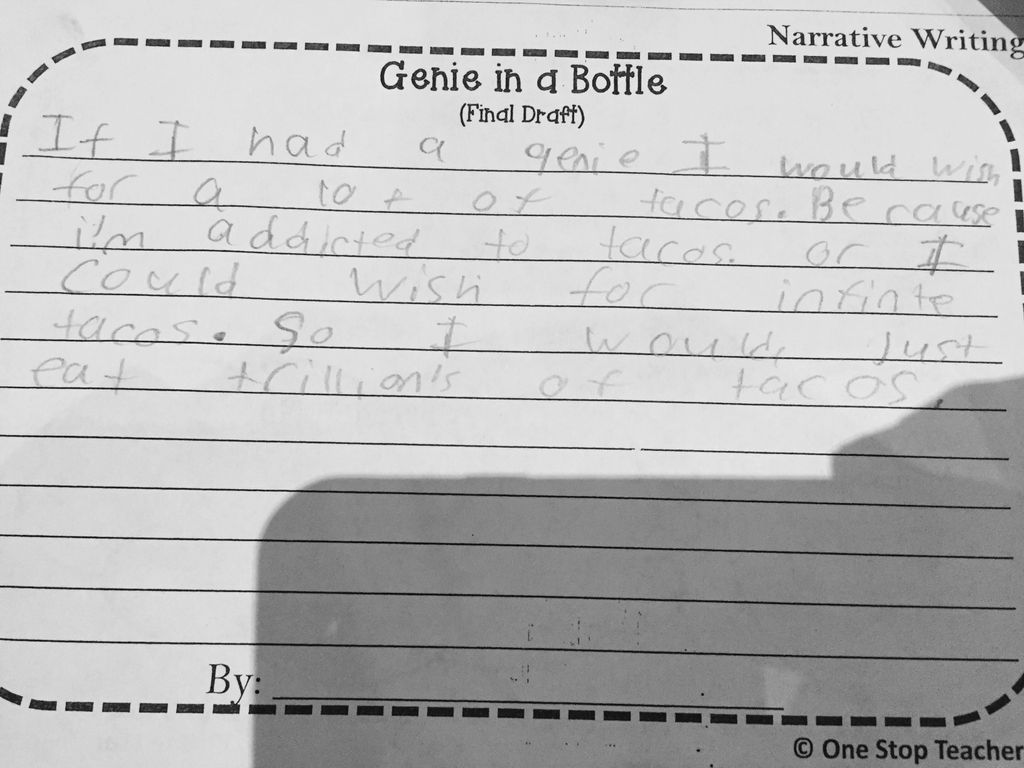 Narrative Writing
Genie in a Bottle
(Final Draft)
If I had a genie I would wish
for a lot of tacos. Because
i'm addicted to tacos. or I
could wish for infinte
tacos. So I would, Just
eat trillion's of tacos.
By:
© One Stop Teacher